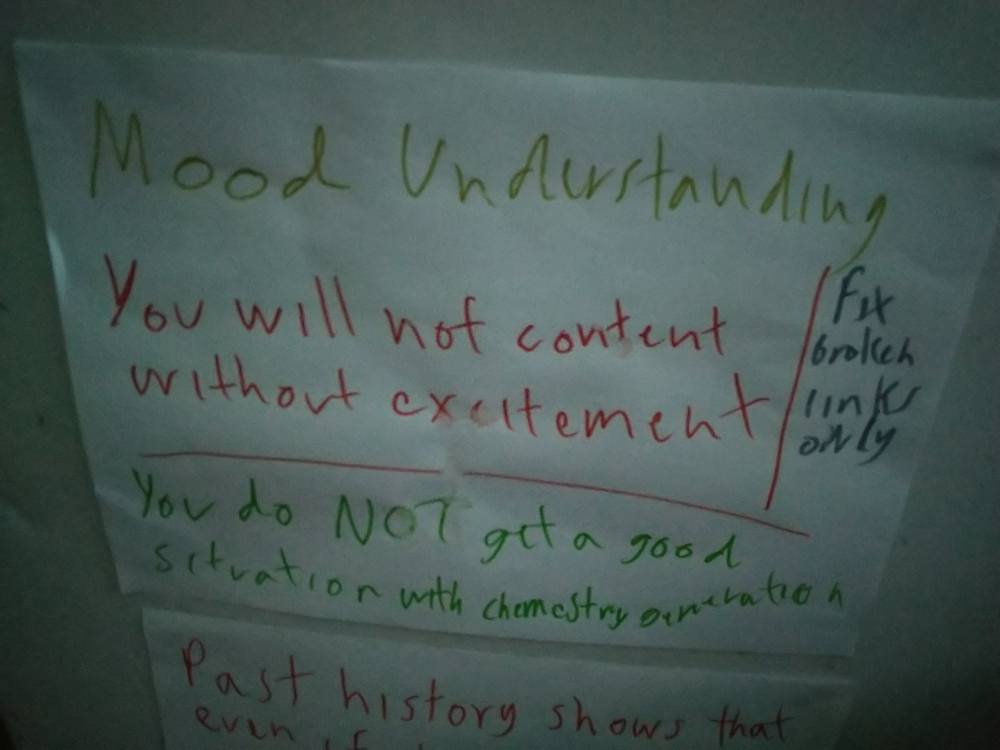 Mood Understanding
You will not content
without excitement
Fix
broken
links
only
You do NOT get a good
situation with chemestry generation
Past history shows that
even if